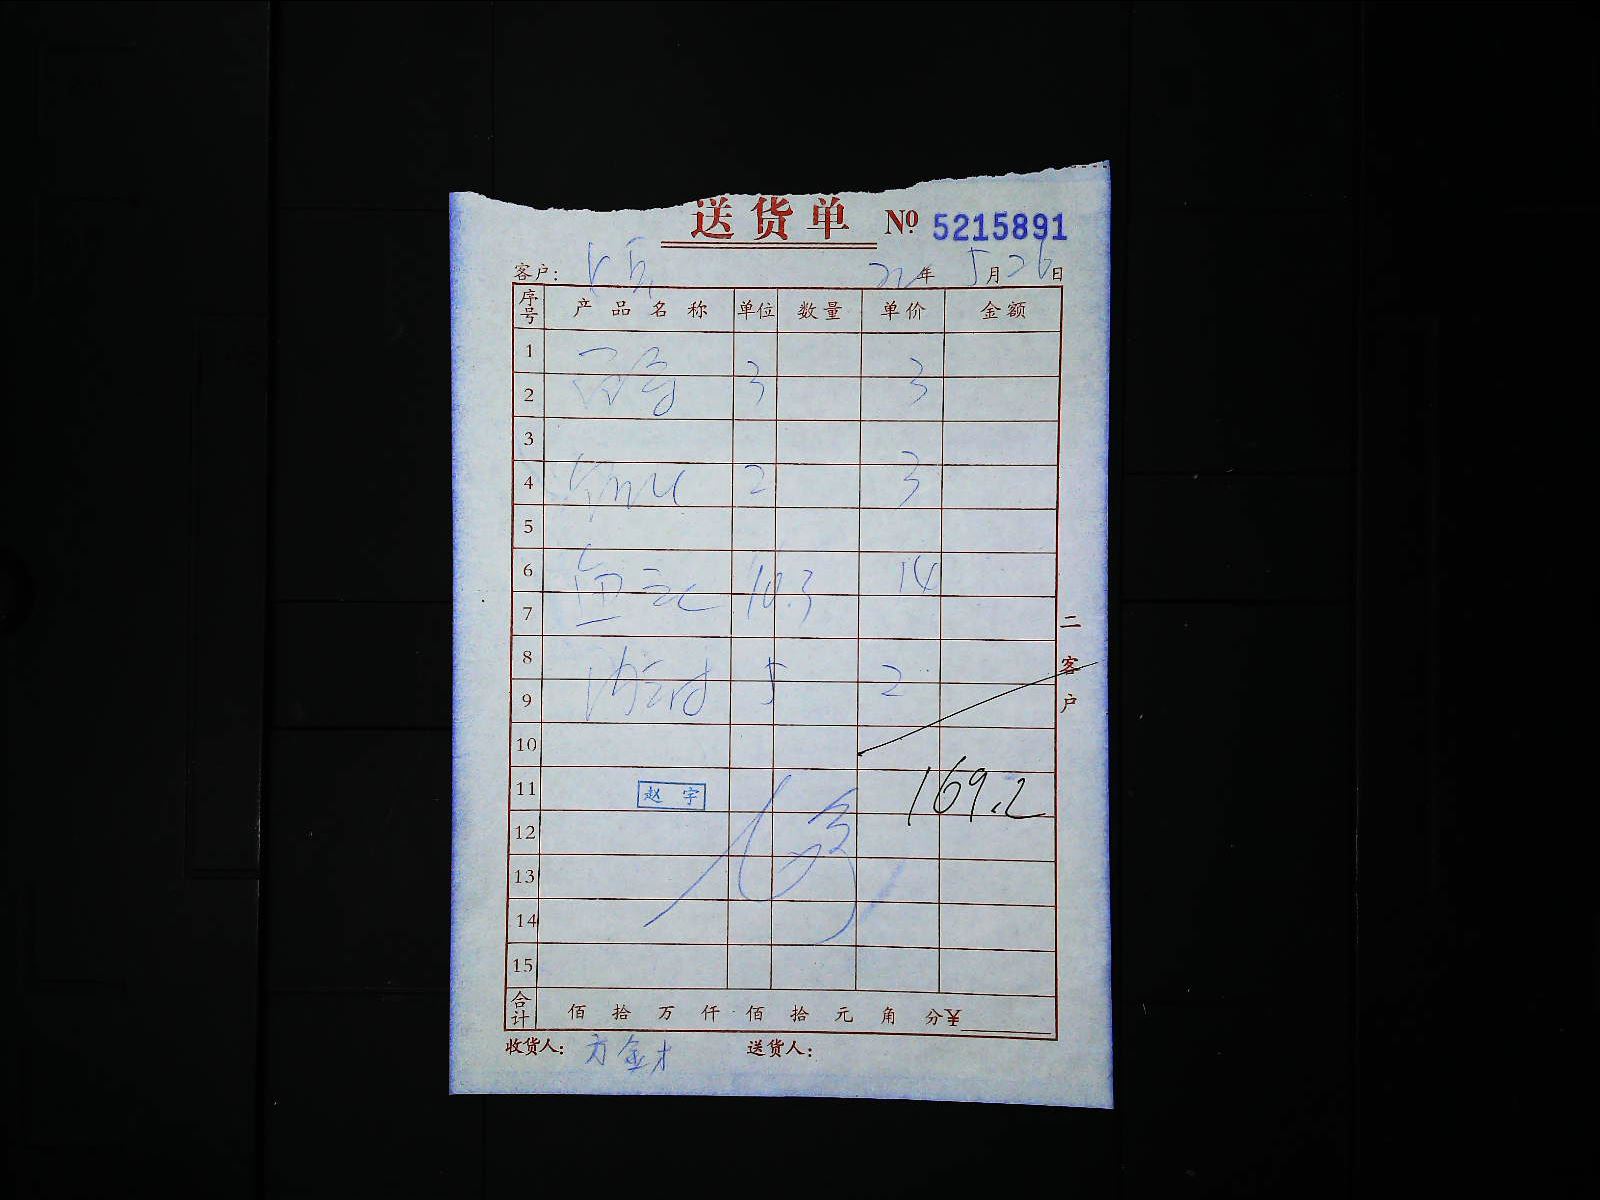 送货单 № 5215891
客户： 年 5月26日
序号 产品名称 单位 数量 单价 金额
1
2 3 3
3
4 2 3
5
6 10.3 14
7
8 5 2
9
10
11 赵宇 169.2
12
13
14
15
合计 佰 拾 万 仟 佰 拾 元 角 分 ¥
收货人：方金才 送货人：
二客户